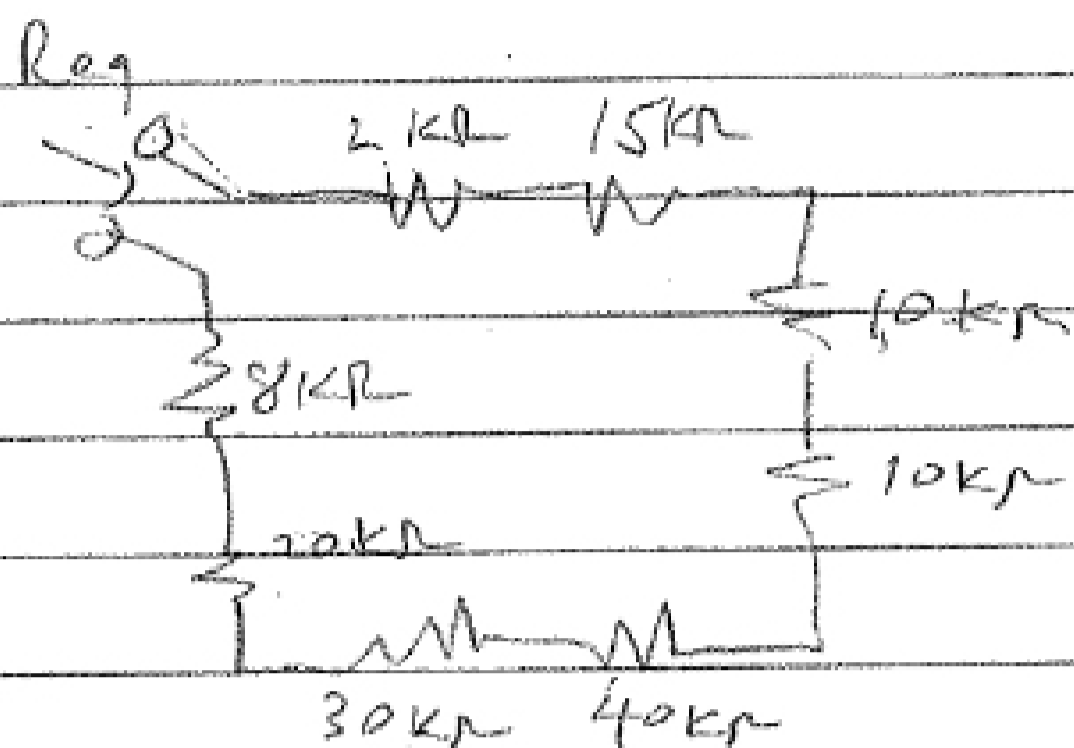 Req
2 KΩ 15KΩ
10 KΩ
8KΩ
10KΩ
20KΩ
30KΩ 40KΩ